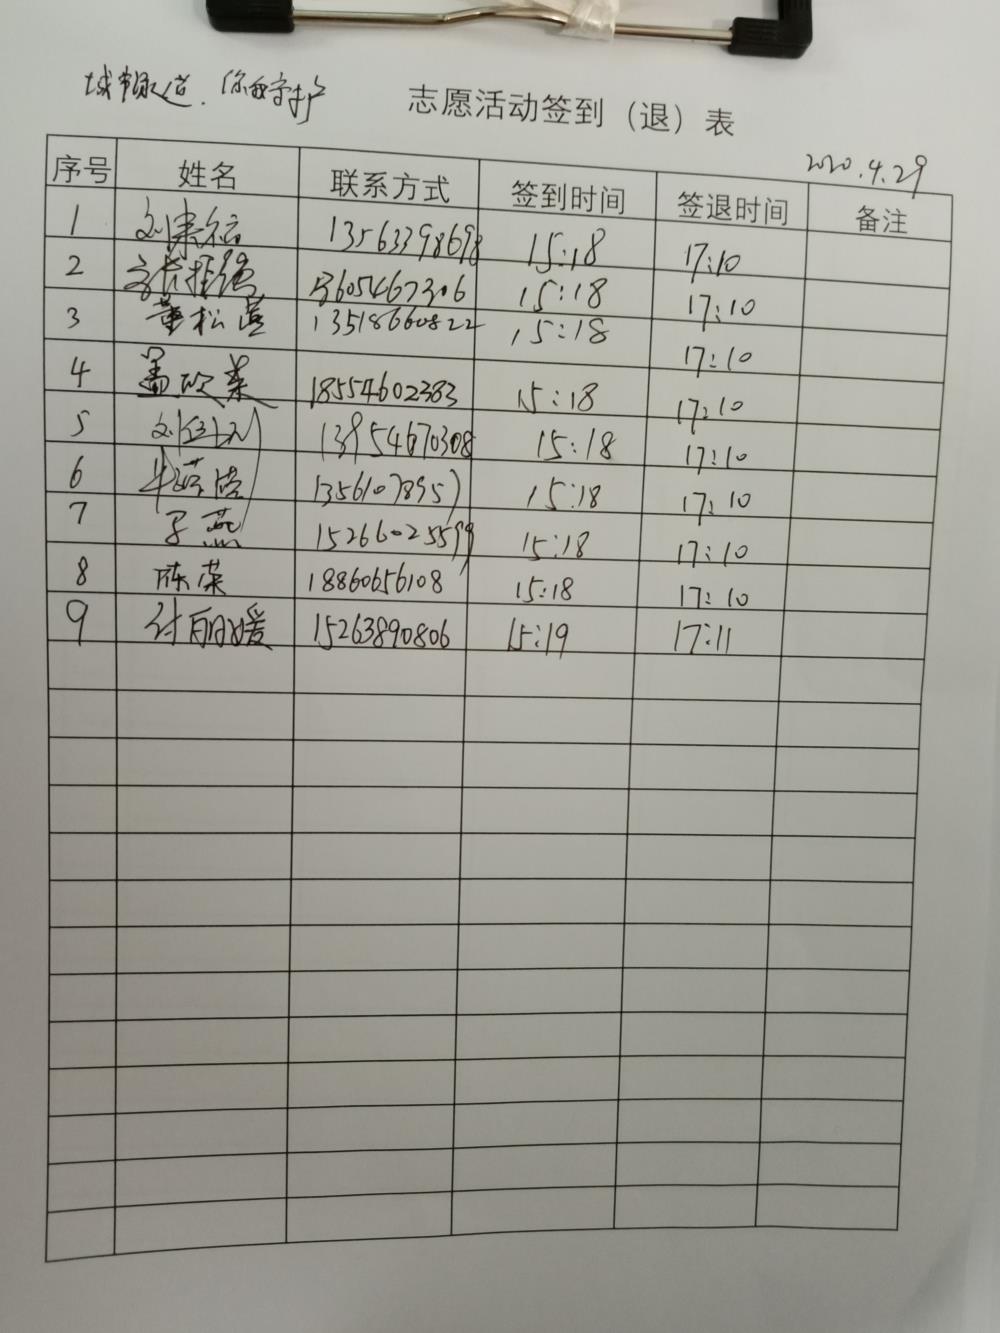 志愿活动签到（退）表
2020.4.29
序号 姓名 联系方式 签到时间 签退时间 备注
1 13563398698 15:18 17:10
2 13605467306 15:18 17:10
3 董松莲 13518660822 15:18 17:10
4 18554602383 15:18 17:10
5 13954670308 15:18 17:10
6 13561078957 15:18 17:10
7 燕 15266025599 15:18 17:10
8 陈荣 18860656108 15:18 17:10
9 付丽媛 15263890806 15:19 17:11